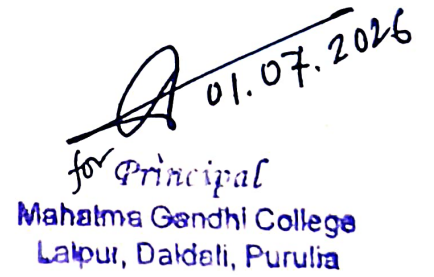 01.07.2026
for Principal
Mahatma Gandhi College
Lalpur, Daldali, Purulia